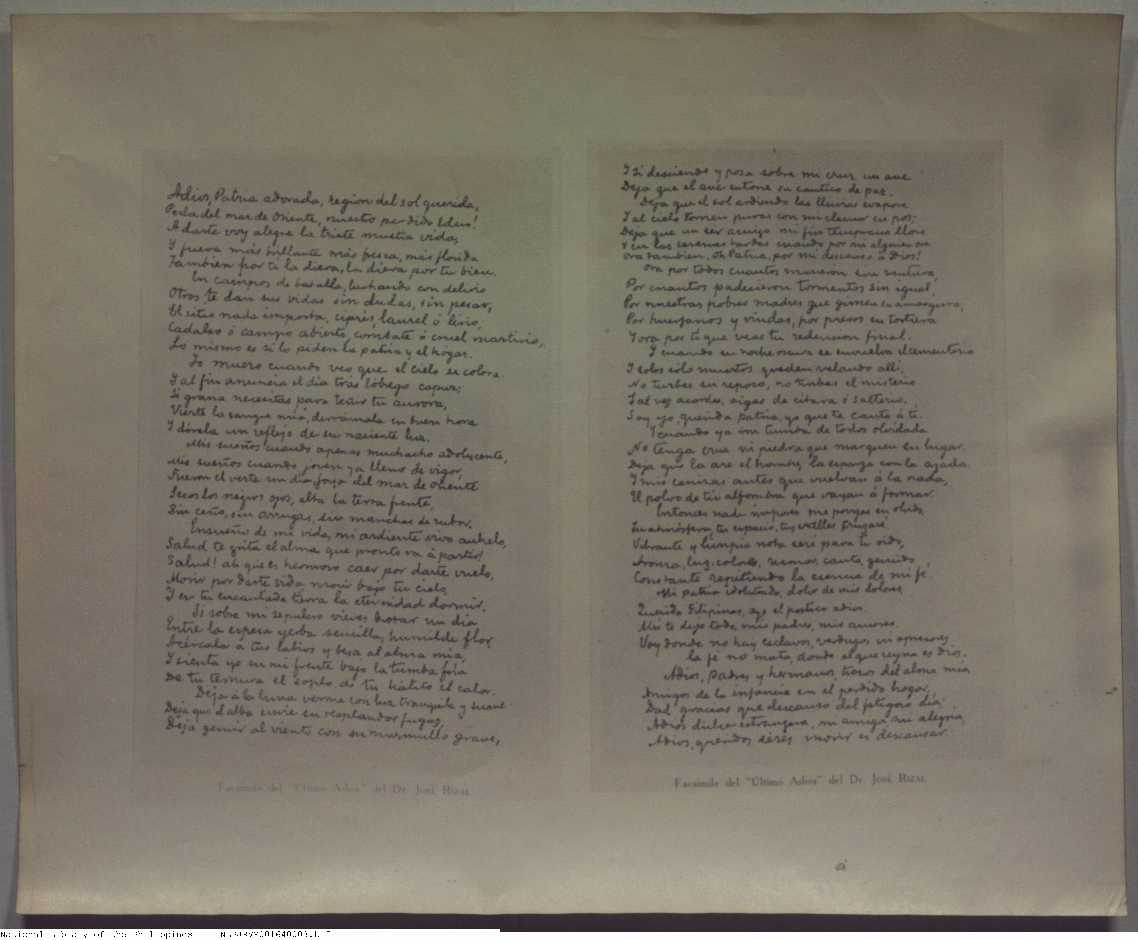 Adios, Patria adorada, region del sol querida,
Perla del mar de Oriente, nuestro perdido Eden!
A darte voy alegre la triste mustia vida,
Y fuera más brillante más fresca, más florida
Tambien por ti la diera, la diera por tu bien.
En campos de batalla, luchando con delirio
Otros te dan sus vidas sin dudas, sin pesar,
El sitio nada importa, ciprés laurel ó lirio,
Cadalso ó campo abierto, combate ó cruel martirio,
Lo mismo es si lo piden la patria y el hogar.
Yo muero cuando veo que el cielo se colora
Y al fin anuncia el dia tras lóbrego capuz;
Si grana necesitas para teñir tu aurora,
Vierte la sangre mia, derrámala en buen hora
Y dórela un reflejo de su naciente luz.
Mis sueños cuando apenas muchacho adolescente,
Mis sueños cuando joven ya lleno de vigor,
Fueron el verte un dia joya del mar de Oriente
Secos los negros ojos, alta la tersa frente,
Sin ceño, sin arrugas, sin manchas de rubor.
Ensueño de mi vida, mi ardiente vivo anhelo,
Salud te grita el alma que pronto va á partir!
Salud! ah que es hermoso caer por darte vuelo,
Morir por darte vida morir bajo tu cielo,
Y en tu encantada tierra la eternidad dormir.
Si sobre mi sepulcro vieres brotar un dia
Entre la espesa yerba sencilla, humilde flor,
Acércala a tus labios y besa al alma mia,
Y sienta yo en mi frente bajo la tumba fria
De tu ternura el soplo de tu hálito el calor.
Deja á la luna verme con luz tranquila y suave
Deja que el alba envie su resplandor fugaz,
Deja gemir al viento con su murmullo grave,
Facsimile del "Último Adios" del Dr. José Rizal
Y si desciende y posa sobre mi cruz un ave
Deja que el ave entone su cantico de paz.
Deja que el sol ardiendo las lluvias evapore
Y al cielo tornen puras con mi clamor en pos;
Deja que un ser amigo mi fin temprano llore
Y en las serenas tardes cuando por mi alguien ore
Ora tambien, Oh Patria, por mi descanso á Dios!
Ora por todos cuantos murieron sin ventura
Por cuantos padecieron tormentos sin igual,
Por nuestras pobres madres que gimen su amargura,
Por huerfanos y viudas, por presos en tortura
Y ora por tí que veas tu redencion final.
Y cuando en noche oscura se envuelva el cementerio
Y solos sólo muertos queden velando allí,
No turbes su reposo, no turbes el misterio
Tal vez acordes oigas de citara ó salterio,
Soy yo, querida Patria, yo que te canto á ti.
Y cuando ya mi tumba de todos olvidada
No tenga cruz ni piedra que marquen su lugar
Deja que la are el hombre, la esparza con la azada
Y mis cenizas antes que vuelvan á la nada,
El polvo de tu alfombra que vayan á formar.
Entonces nada importa me pongas en olvido,
Tu atmósfera, tu espacio, tus valles cruzaré
Vibrante y limpia nota seré para tu oido,
Aroma, luz, colores, rumor, canto, gemido,
Constante repitiendo la esencia de mi fé.
Mi patria idolatrada, dolor de mis dolores,
Querida Filipinas, oye el postrer adios.
Ahi te dejo todo, mis padres, mis amores.
Voy donde no hay esclavos, verdugos ni opresores,
la fé no mata, donde el que reyna es Dios.
Adios, padres y hermanos, trozos del alma mia
Amigos de la infancia en el perdido hogar,
Dad gracias que descanso del fatigoso dia;
Adios dulce extrangera, mi amiga mi alegria,
Adios, queridos séres morir es descansar.
Facsimile del "Último Adios" del Dr. José Rizal
National Library of the Philippines